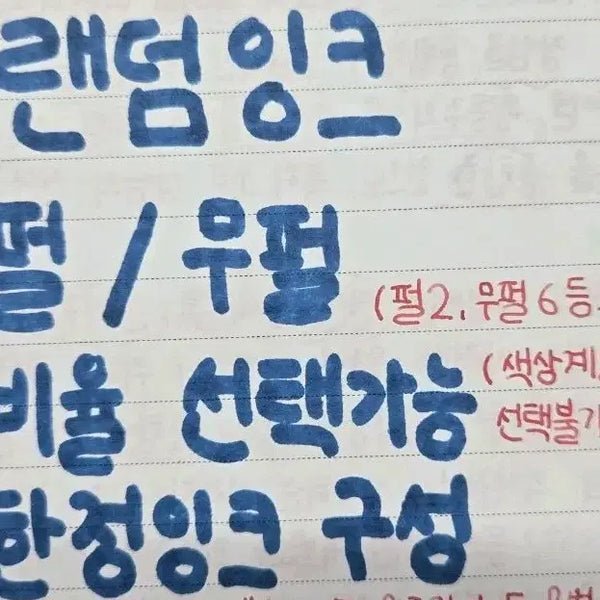 랜덤잉크
펄 / 무펄 (펄2, 무펄6 등
비율 선택가능 (색상계
선택불가
한정잉크 구성